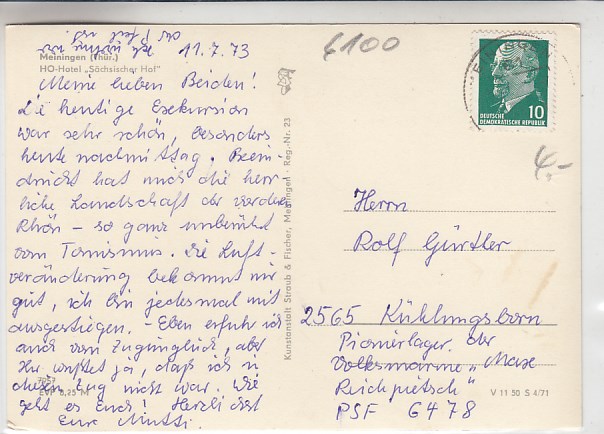 Meiningen (Thür.)
HO-Hotel „Sächsischer Hof"
11.7.73
Meine lieben Beiden!
Die heutige Exkursion
war sehr schön, besonders
heute nachmittag. Beein-
druckt hat mich die herr-
liche Landschaft der vorderen
Rhön – so ganz unberührt
vom Tourismus. Die Luft-
veränderung bekommt mir
gut, ich bin jedesmal mit
ausgestiegen. – Eben erfuhr ich
auch vom Zugunglück, aber
Ihr wußtet ja, daß ich in
diesem Zug nicht war. Wie
geht es Euch? Herzlichst
Eure Mutti.
EVP 0,25 M
Kunstanstalt Straub & Fischer, Meiningen · Reg.-Nr. 23
6100
DEUTSCHE
DEMOKRATISCHE REPUBLIK
10
4,-
Herrn
Rolf Gürtler
2565 Kühlungsborn
Pionierlager der
Volksmarine „Max
Reichpietsch"
PSF 6478
V 11 50 S 4/71